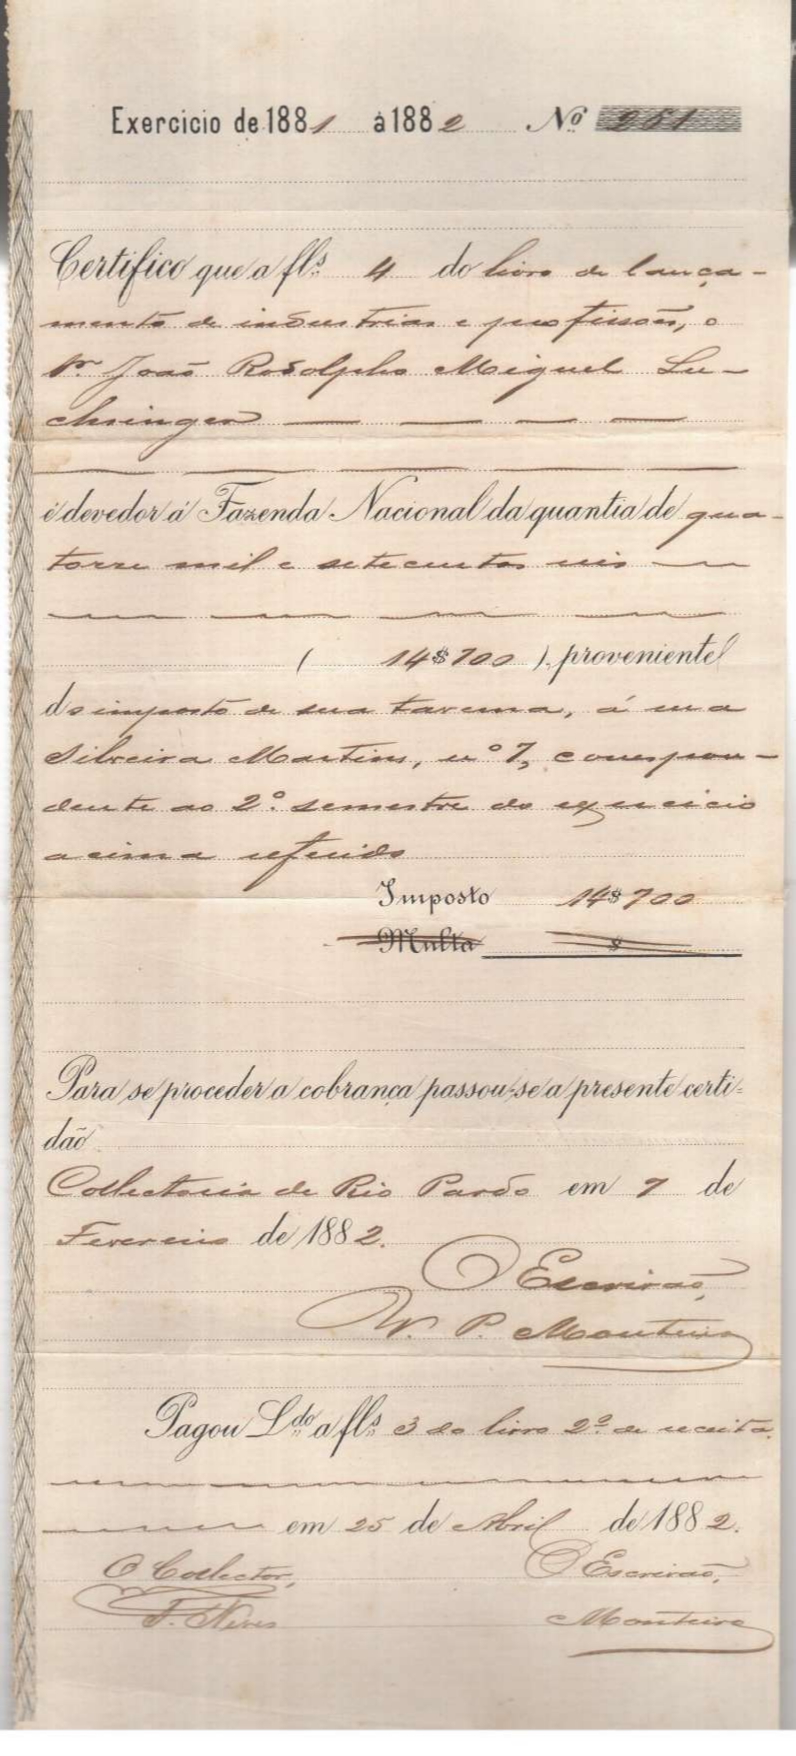 Exercicio de 1881 á 1882 Nº 251
Certifico que a fls. 4 do livro de lança-
mento de industrias e profissões, o
Sr. João Rodolpho Miguel Lu-
chsinger
é devedor á Fazenda Nacional da quantia de qua-
torze mil e setecentos reis
( 14$700 ), proveniente
do imposto de sua taverna, á rua
Silveira Martins, nº 7, correspon-
dente ao 2º. semestre do exercicio
acima referido
Imposto 14$700
Multa $
Para se proceder a cobrança passou-se a presente certi-
dão
Collectoria de Rio Pardo em 7 de
Fevereiro de 1882.
O Escrivão,
W. P. Monteiro
Pagou L.do a fls. 3 do livro 2º de receita.
em 25 de Abril de 1882.
O Collector, O Escrivão,
T. Neves Monteiro